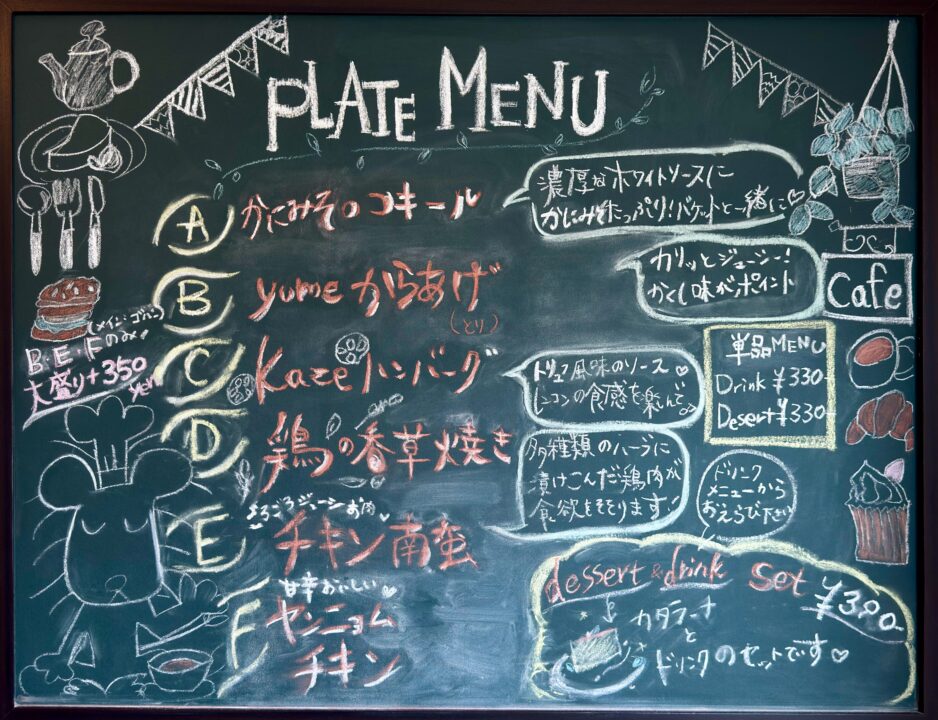 PLATE MENU
A かにみその コキール
濃厚なホワイトソースに
かにみそたっぷり!バケットと一緒に♡
B yumeからあげ
(とり)
カリッとジューシー!
かくし味がポイント
Cafe
(メイン・ゴハン)
B・E・Fのみ
大盛り+350
yen
C Kazeハンバーグ
風味のソース
レンコンの食感を楽しんで
単品MENU
Drink ¥330-
Desert ¥330-
D 鶏の香草焼き
多種類のハーブに
漬けこんだ鶏肉が
食欲をそそります!
ドリンク
メニューから
おえらび下さい
E ごろごろジューシーお肉
チキン南蛮
F 甘辛おいしい♡
ヤンニョム
チキン
dessert & drink set ¥390-
カタラーナ
と
ドリンクのセットです♡